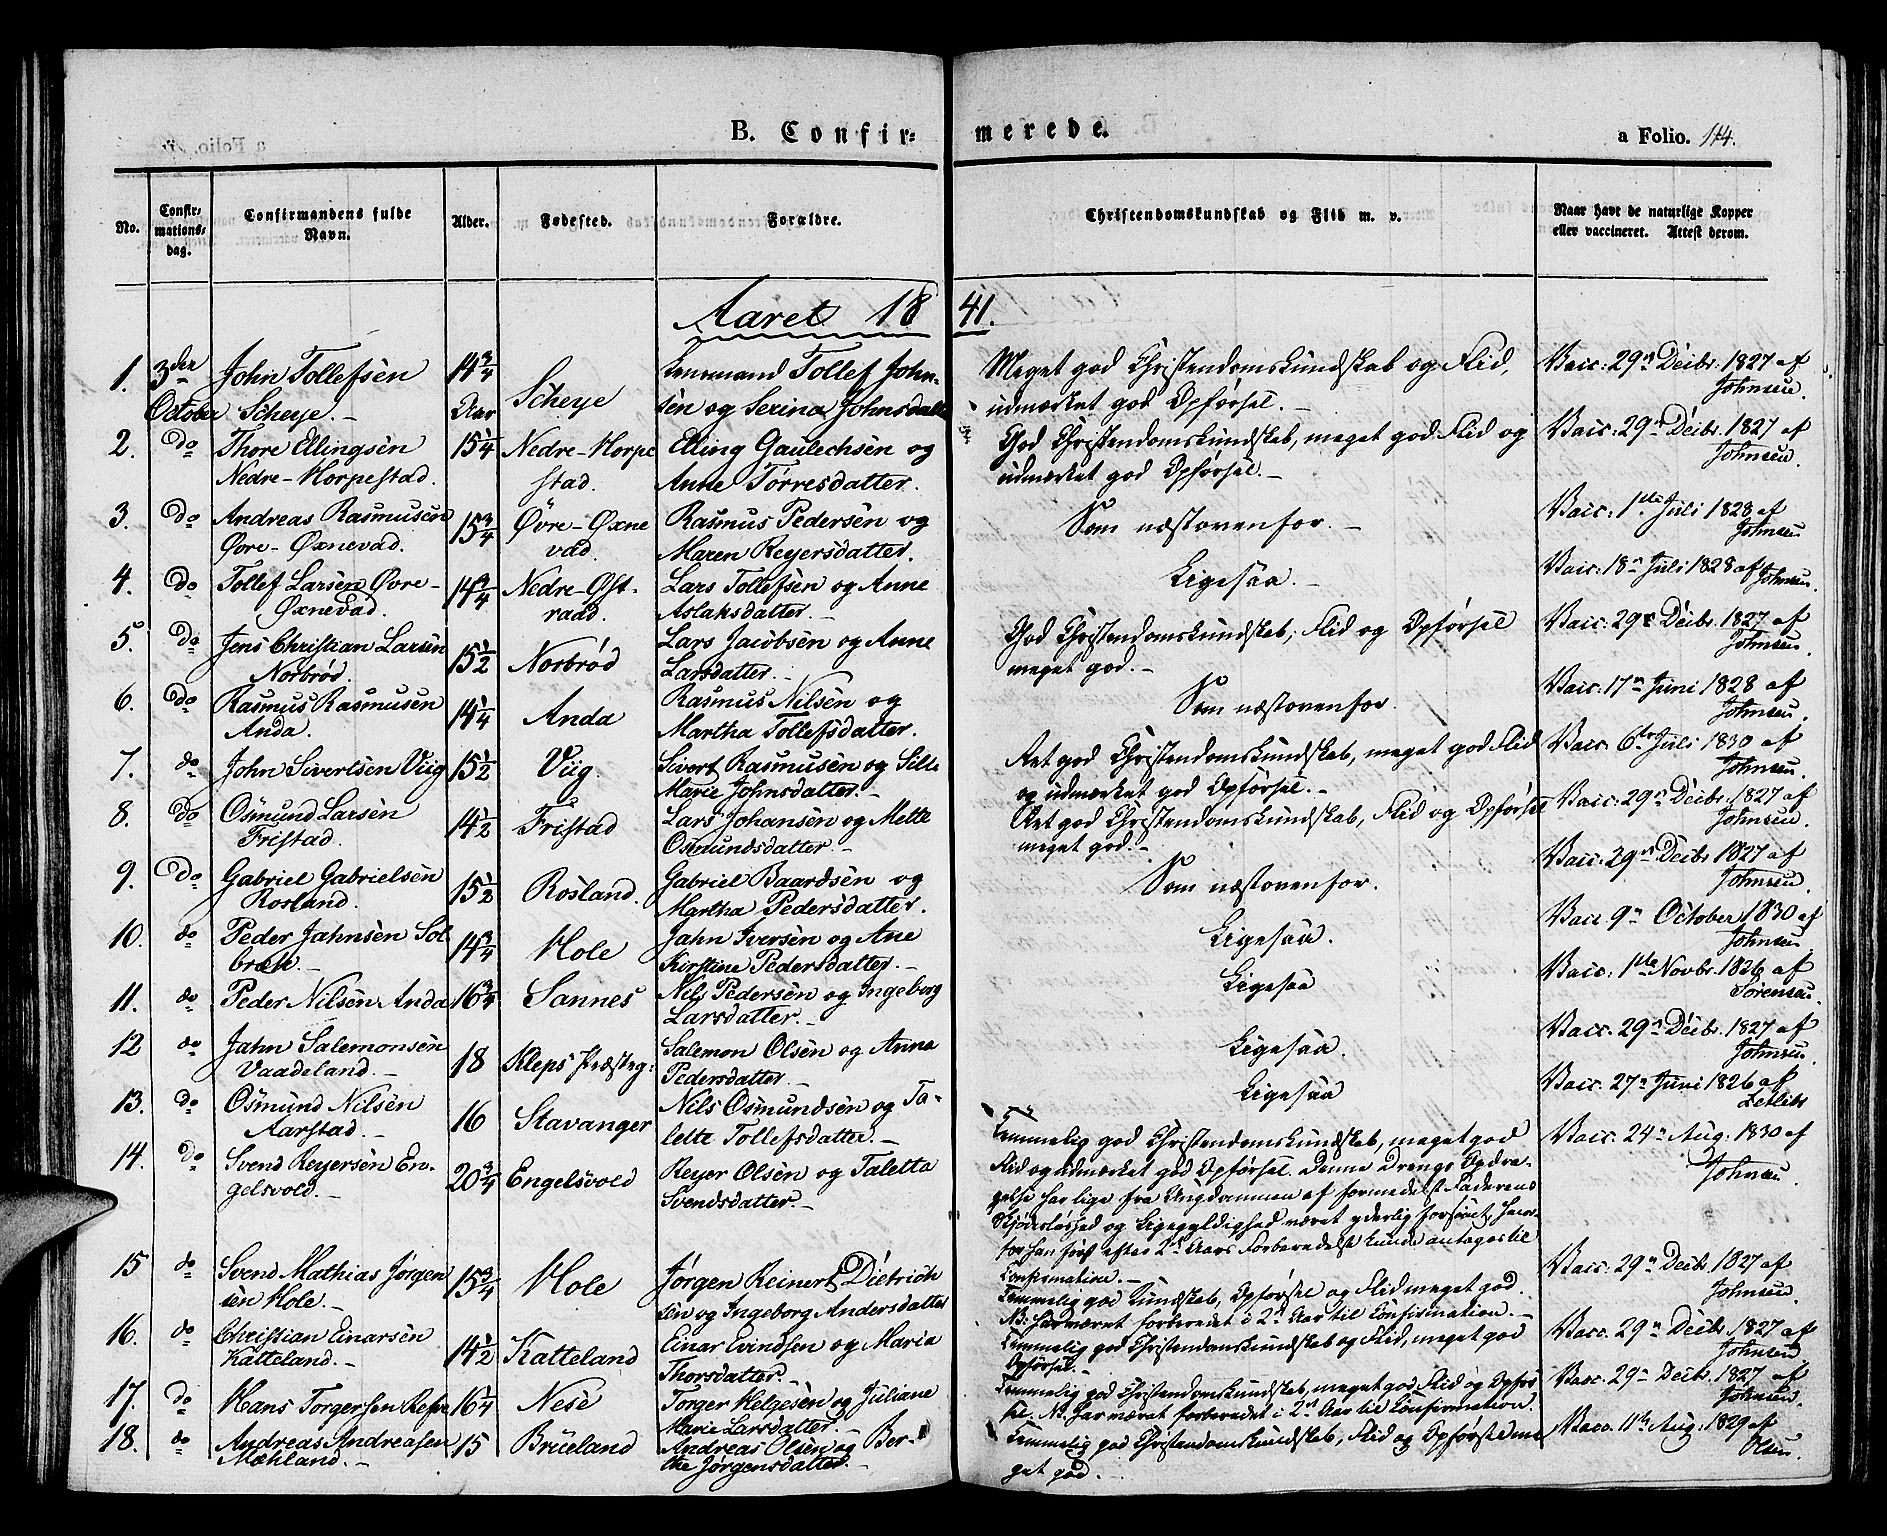 B. Confir=
merede.
a Folio. 114.
No.
Confir-
mations-
dag.
Confirmandens fulde
Navn.
Alder.
Fødested.
Forældre.
Christendomskundskab og Flid m. v.
Naar havt de naturlige Kopper
eller vaccineret. Attest derom.
Aaret 18 41.
1. 3die October
John Tollefsen
Scheje.-
14 3/4 Aar
Scheje
Lensmand Tollef John-
sen og Serina Johnsdatter
Meget god Christendomskundskab og Flid,
udmærket god Opførsel.-
Vacc: 29n Decbr. 1827 af
Johnsen.
2. do
Thore Ellingsen
Nedre-Horpestad.
15 1/4
Nedre-Horpe
stad.
Elling Gaulechsen og
Anne Torresdatter.
God Christendomskundskab, meget god Flid og
udmærket god Opførsel.-
Vacc: 29n Decbr. 1827 af
Johnsen.
3. do
Andreas Rasmusen
Øvre-Øxnevad.
15 3/4
Øvre-Øxne
vad.
Rasmus Pedersen og
Maren Reyersdatter.
Som næstovenfor.-
Vacc: 1ste Juli 1828 af
Johnsen
4. do
Tollef Larsen Øvre-
Øxnevad.
14 3/4
Nedre-Øst-
raad.
Lars Tollefsen og Anne
Aslaksdatter.
Ligesaa.-
Vacc: 18n Juli 1828 af Johnsen.
5. do
Jens Christian Larsen
Norbrød.
15 1/2
Norbrød
Lars Jacobsen og Anne
Larsdatter.-
God Christendomskundskab, Flid og Opførsel
meget god.-
Vacc: 29n Decbr. 1827 af
Johnsen.
6. do
Rasmus Rasmusen
Anda.
14 1/4
Anda
Rasmus Nilsen og
Martha Tollefsdatter.
Som næstovenfor.
Vacc: 17n Juni 1828 af
Johnsen.
7. do
John Sivertsen Viig
15 1/2
Viig.
Sivert Rasmusen og Silte
Marie Johnsdatter.-
Ret god Christendomskundskab, meget god Flid
og udmærket god Opførsel.-
Vacc. 6te Juli 1830 af
Johnsen.
8. do
Osmund Larsen
Fristad.
14 1/2
Fristad
Lars Johansen og Mette
Osmundsdatter.-
Ret god Christendomskundskab, Flid og Opførsel
meget god.-
Vacc: 29n Decbr. 1827 af
Johnsen.
9. do
Gabriel Gabrielsen
Rosland.
15 1/2
Rosland.
Gabriel Baardsen og
Martha Pedersdatter.
Som næstovenfor.
Vacc: 29n Decbr 1827 af
Johnsen.
10. do
Peder Jahnsen Sol
bræk.-
14 3/4
Hole
Jahn Iversen og Ane
Kirstine Pedersdatter.-
Ligesaa.
Vacc. 9n October 1830 af
Johnsen.
11. do
Peder Nilsen Anda
16 3/4
Sannes
Nils Pedersen og Ingeborg
Larsdatter.-
Ligesaa
Vacc: 1ste Novbr. 1826 af
Sørensen.
12 do
Jahn Salemonsen
Vaadeland.-
18
Kleps Præsteg:
Salemon Olsen og Anna
Pedersdatter.-
Ligesaa.
Vacc: 29n Decbr. 1827 af
Johnsen.
13. do
Osmund Nilsen
Aarstad.-
16
Stavanger
Nils Osmundsen og Ta-
lette Tollefsdatter.-
Ligesaa
Vacc. 27n Juni 1826 af
14. do
Svend Reyersen En-
gelsvold.-
20 3/4
Engelsvold
Reyer Olsen og Taletta
Svendsdatter.-
Temmelig god Christendomskundskab, meget god
Flid og udmærket god Opførsel. Denne Drengs Opdra-
gelse har lige fra Ungdommen af formedelst Faderens
Skjødesløshed og Ligegyldighed været yderlig forsømt, hvor-
for han først efter 2 Aars Forberedelse kunde antages til
Confirmation.-
Vacc: 24n Aug: 1830 af
Johnsen.
15 do
Svend Mathias Jørgen
sen Hole.-
15 3/4
Hole
Jørgen Reinert Dietrich
sen og Ingeborg Andersdatter
Temmelig god Kundskab, Opførsel og Flid meget god.
NB. har været forberedet i 2 Aar til Confirmation.-
Vacc: 29n Decbr. 1827 af
Johnsen.
16. do
Christian Einarsen
Katteland.-
14 1/2
Katteland
Einar Evindsen og Maria
Thorsdatter.-
Temmelig god Christendomskundskab og Flid, meget god
Opførsel.-
Vacc. 29n Decbr. 1827 af
Johnsen
17. do
Hans Torgersen Refne
16 1/4
Nese
Torger Helgesen og Juliane
Marie Larsdatter.-
Temmelig god Christendomskundskab, meget god Flid og Opfør
sel. NB. har været forberedet i 2 Aar til Confirmation.
Vacc. 29n Decbr. 1827 af
Johnsen.
18. do
Andreas Andreasen
Mæhland.-
15
Brueland
Andreas Olsen og Ber-
the Jørgensdatter.-
Temmelig god Christendomskundskab, Flid og Opførsel me
get god.-
Vacc. 11te Aug: 1829 af
Olsen.